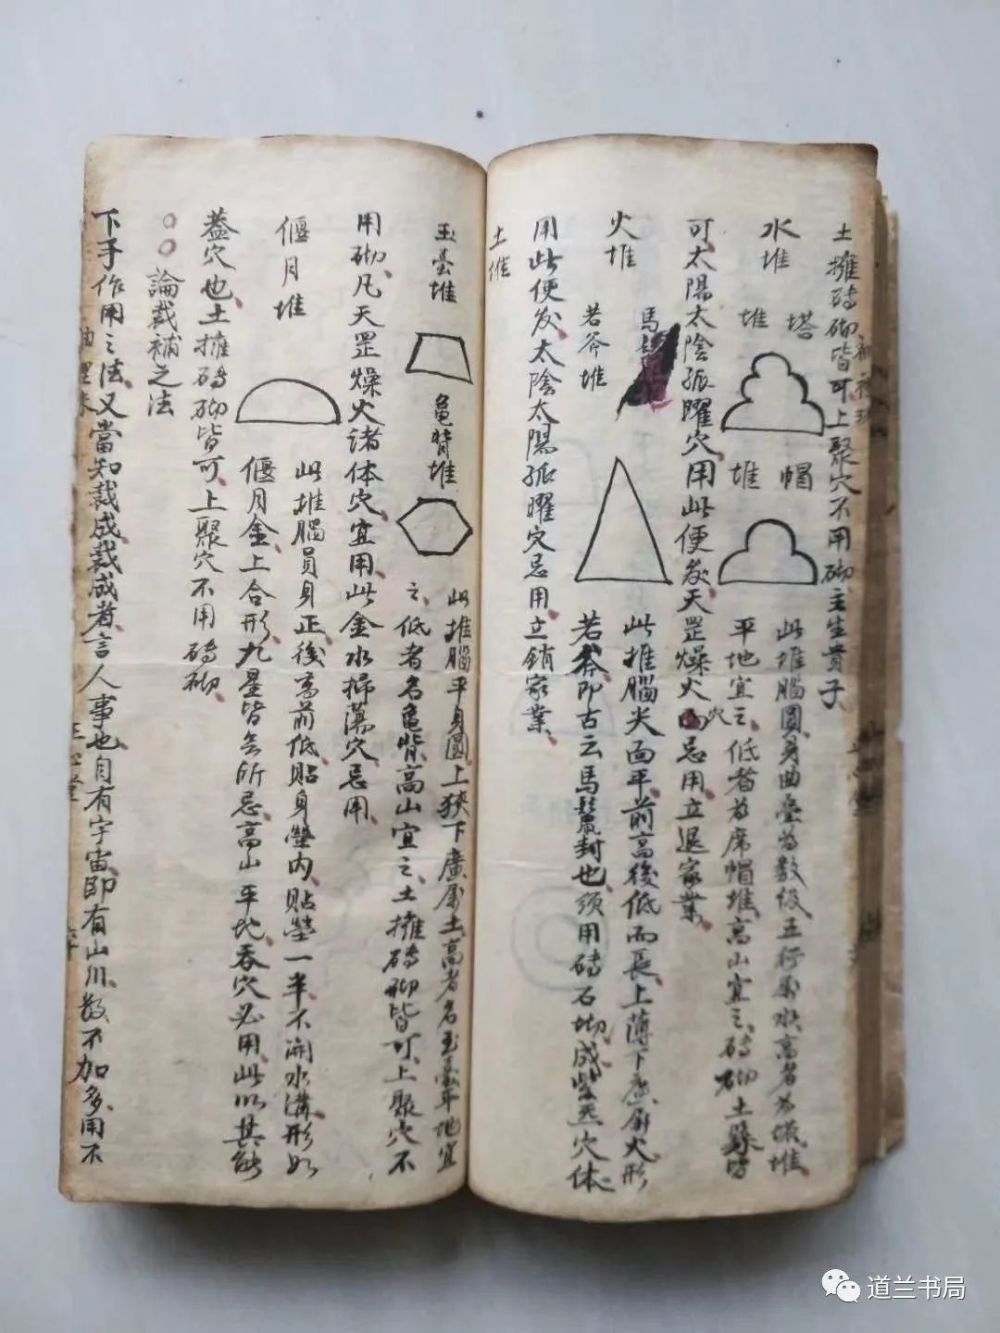 土擁磚砌皆可上聚穴不用砌主生貴子
水堆
塔堆
帽堆
此堆腦圓身曲疊為數級五行屬水高者為塔堆
平地宜之低者為席帽堆高山宜之磚砌土築皆
可太陽太陰孤曜穴用此便發天罡燥火穴忌用立退家業
火堆
馬
若斧堆
此堆腦尖面平前高後低而長上薄下廣屬火形
若斧即古云馬鬣封也須用磚石砌成紫炁穴体
用此便發太陰太陽孤曜穴忌用立銷家業
土堆
玉臺堆
龜背堆
此堆腦平身圓上狹下廣屬土高者名玉臺平地宜
之低者名龜背高山宜之土擁磚砌皆可上聚穴不
用砌凡天罡燥火諸体穴宜用此金水掃蕩穴忌用
偃月堆
此堆腦員身正後高前低貼身塋內貼塋一半不開水溝形如
偃月金上合形九星皆無所忌高山平地吞穴必用此以其能
蓋穴也土擁磚砌皆可上聚穴不用磚砌
○○論裁補之法
下手作用之法又當知裁成裁成者言人事也自有宇宙即有山川數不加多用不
道兰书局